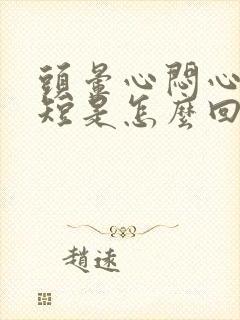 頭暈心悶心
短是怎麼回
趙遠